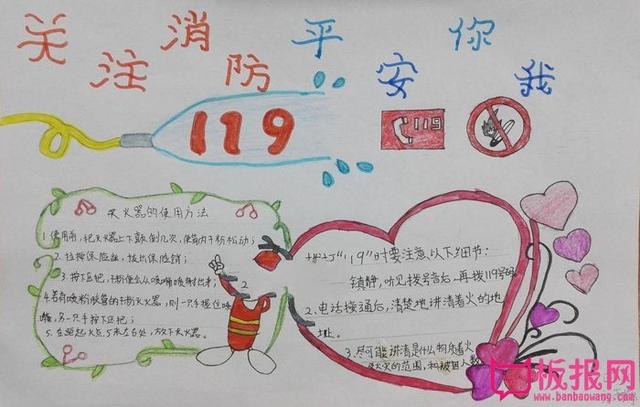 关注消防平安你我
119
119
灭火器的使用方法
1.使用前,把灭火器上下颠倒几次,使筒内干粉松动;
2.拉掉保险盘,拔出保险销;
3.按下压把,干粉便会从喷嘴喷射出来;
4.若有喷粉胶管的干粉灭火器,则一只手握住喷
嘴,另一只手按下压把;
5.在距起火点5米左右处,放下灭火器。
"119"时要注意以下细节:
镇静,听见拨号音后,再拨119号码
2.电话接通后,清楚地讲清着火的地
址。
3.尽可能讲清是什么物质着火
火的范围,和被困人数
板报网
www.banbaowang.com